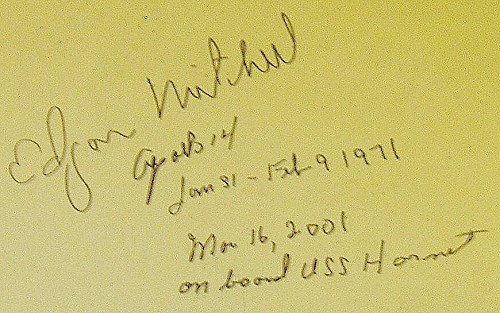 Edgar Mitchell
Apollo 14
Jan 31 - Feb 9 1971
Mar 16, 2001
on board USS Hornet